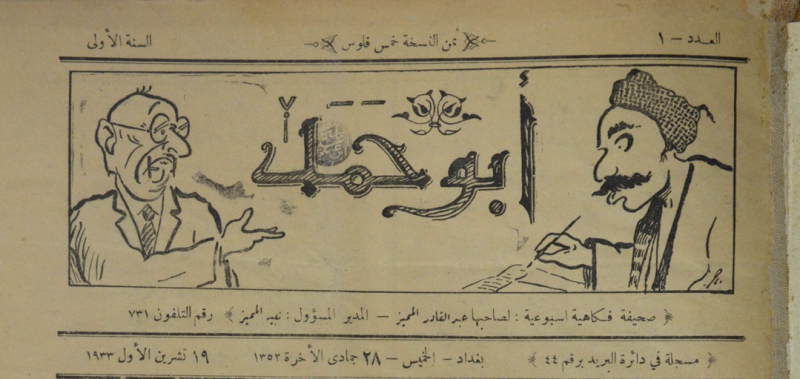 العدد - ١ ثمن النسخة خمس فلوس السنة الأولى
أبو حمد
صحيفة فكاهية اسبوعية : لصاحبها عبد القادر المميز - المدير المسؤول : نعيم المميز رقم التلفون ٧٣١
مسجلة في دائرة البريد برقم ٤٤ بغداد - الخميس - ٢٨ جمادى الأخرة ١٣٥٢ ١٩ تشرين الأول ١٩٣٣